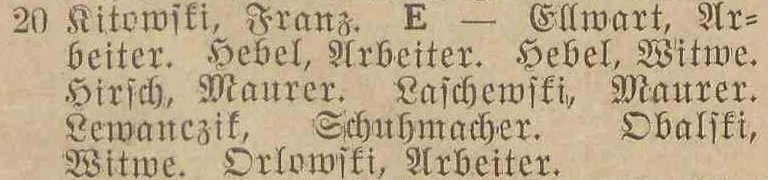 20 Kitowski, Franz. E — Ellwart, Ar-
beiter. Hebel, Arbeiter. Hebel, Witwe.
Hirsch, Maurer. Laschewski, Maurer.
Lewanczik, Schuhmacher. Obalski,
Witwe. Orlowski, Arbeiter.